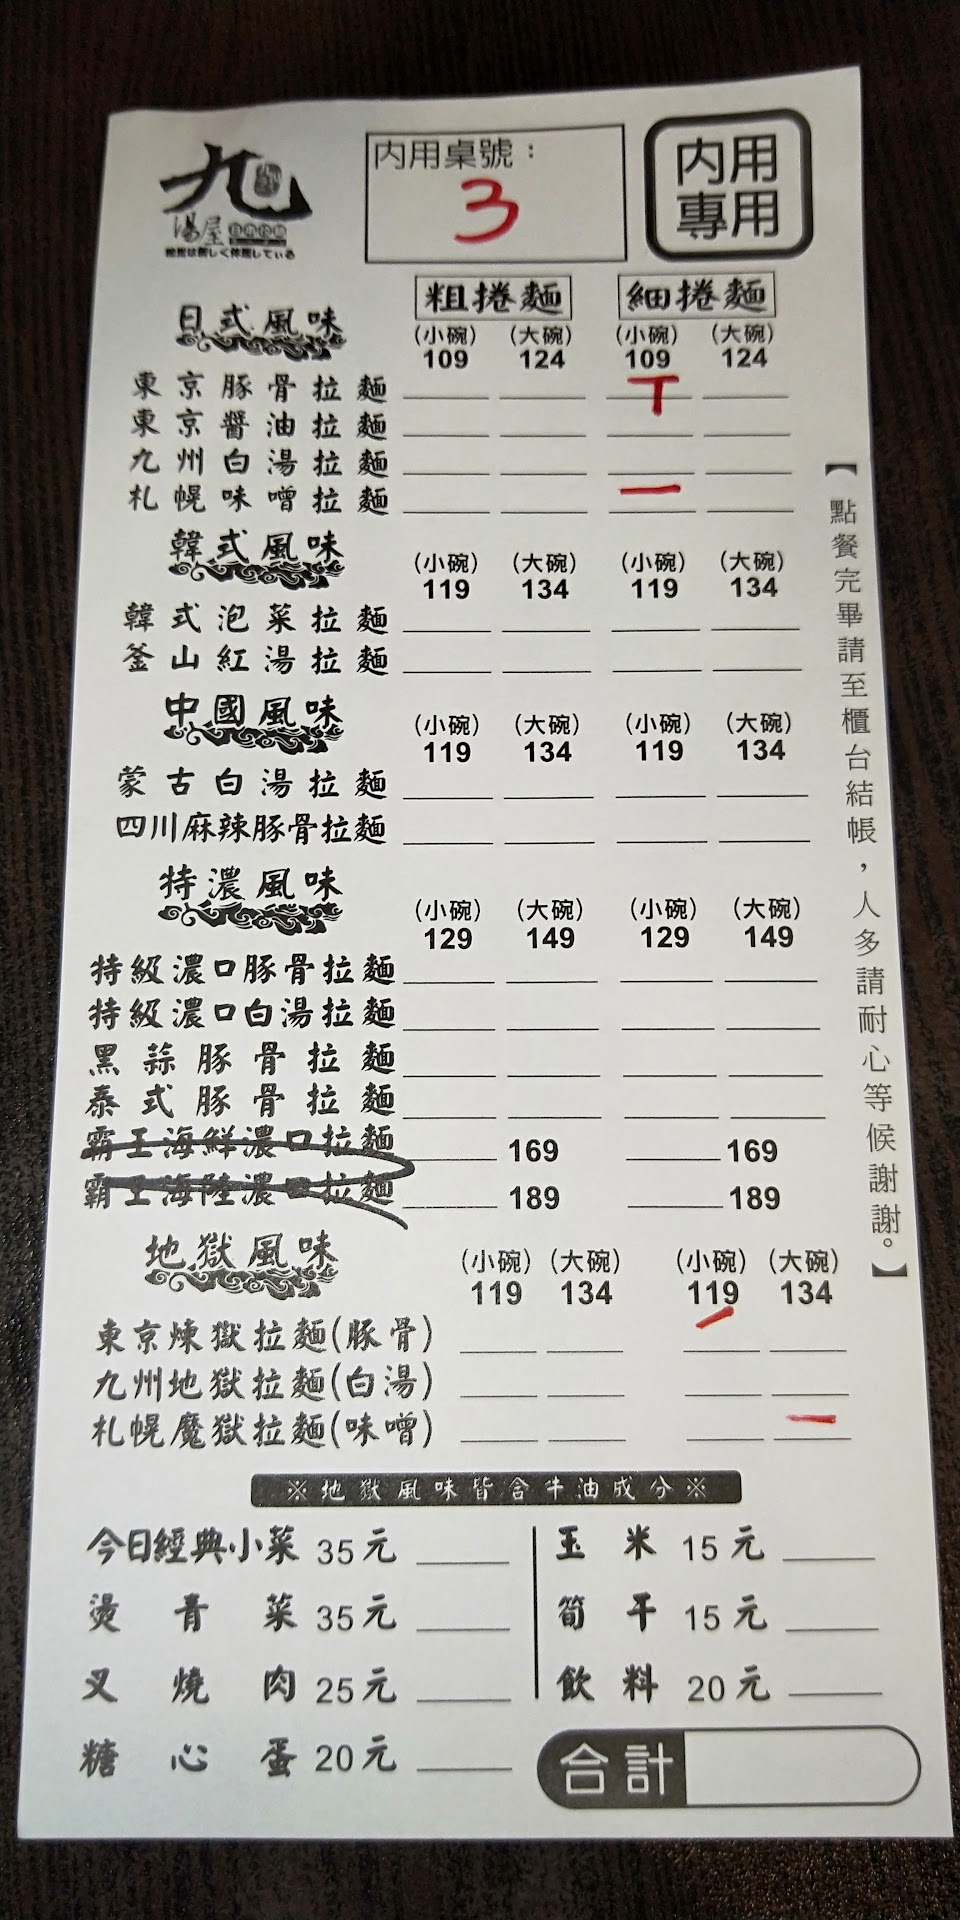 九
湯屋
內用桌號：
3
內用
專用
粗捲麵 細捲麵
日式風味 (小碗) (大碗) (小碗) (大碗)
109 124 109 124
東京豚骨拉麵 T
東京醬油拉麵
九州白湯拉麵
札幌味噌拉麵 一
韓式風味 (小碗) (大碗) (小碗) (大碗)
119 134 119 134
韓式泡菜拉麵
釜山紅湯拉麵
中國風味 (小碗) (大碗) (小碗) (大碗)
119 134 119 134
蒙古白湯拉麵
四川麻辣豚骨拉麵
特濃風味 (小碗) (大碗) (小碗) (大碗)
129 149 129 149
特級濃口豚骨拉麵
特級濃口白湯拉麵
黑蒜豚骨拉麵
泰式豚骨拉麵
霸王海鮮濃口拉麵 169 169
霸王海陸濃口拉麵 189 189
地獄風味 (小碗) (大碗) (小碗) (大碗)
119 134 119 134
東京煉獄拉麵(豚骨) 一
九州地獄拉麵(白湯)
札幌魔獄拉麵(味噌) 一
※地獄風味皆含牛油成分※
今日經典小菜 35元 玉米 15元
燙青菜 35元 筍干 15元
叉燒肉 25元 飲料 20元
糖心蛋 20元
合計
【點餐完畢請至櫃台結帳，人多請耐心等候謝謝。】